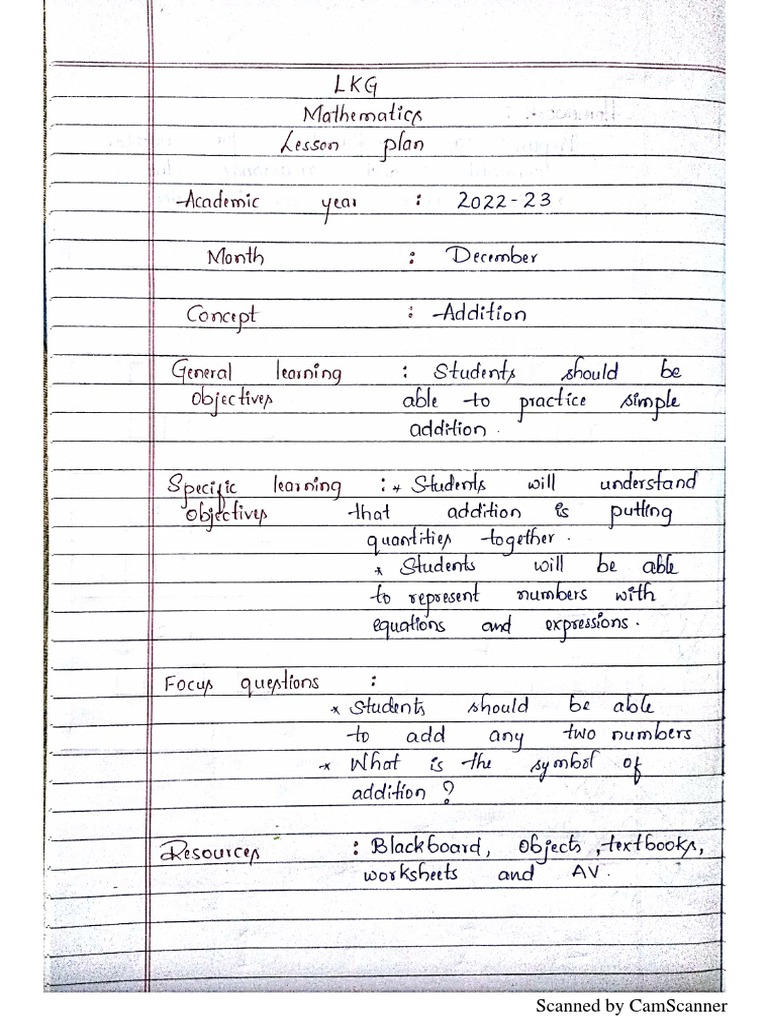 LKG
Mathematics
Lesson plan
Academic year : 2022-23
Month : December
Concept : Addition
General learning : Students should be
objectives able to practice simple
addition.
Specific learning : * Students will understand
objectives that addition is putting
quantities together.
* Students will be able
to represent numbers with
equations and expressions.
Focus questions :
* Students should be able
to add any two numbers
* What is the symbol of
addition ?
Resources : Blackboard, objects, textbooks,
worksheets and AV.
Scanned by CamScanner